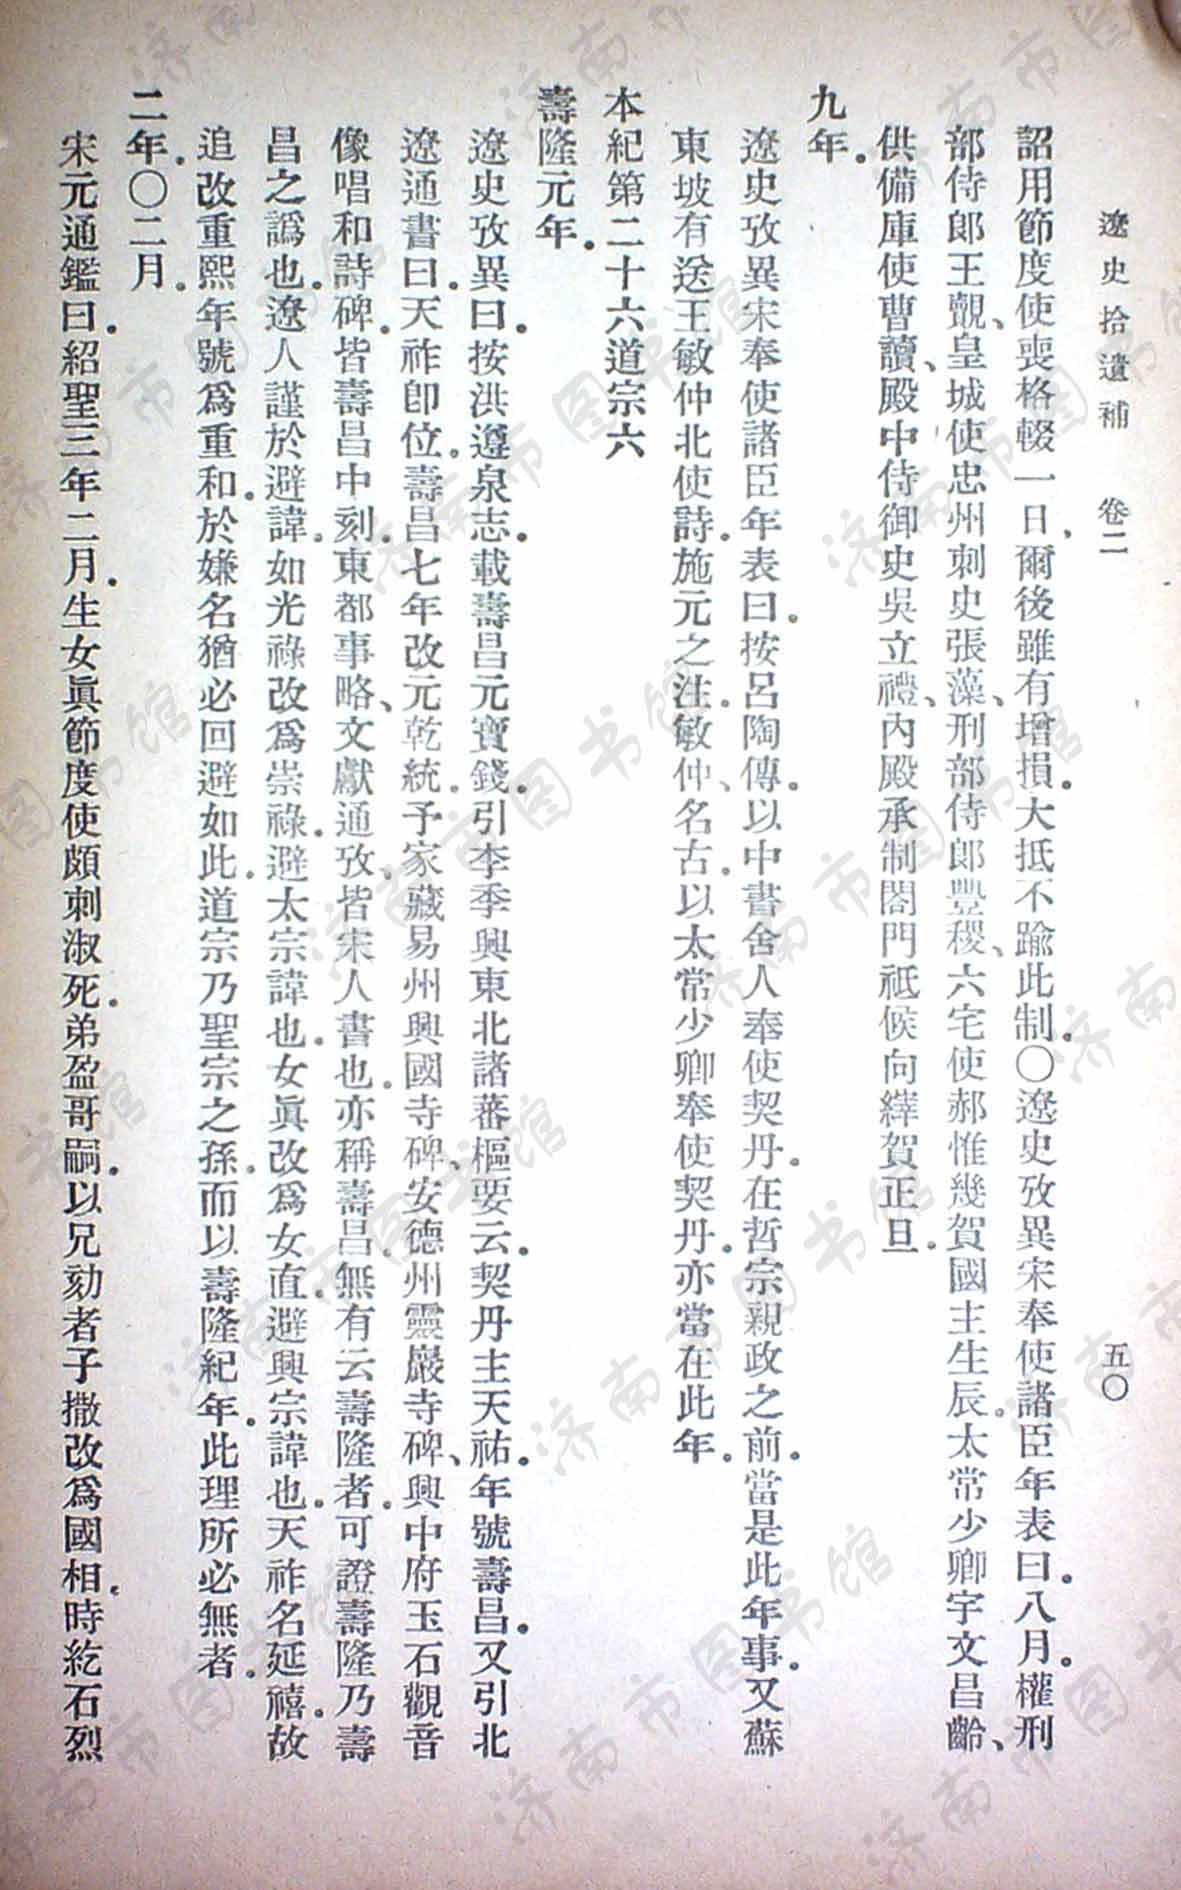 遼史拾遺補　卷二　五〇
詔用節度使喪格輟一日、爾後雖有增損。大抵不踰此制。〇遼史攷異宋奉使諸臣年表曰。八月。權刑
部侍郎王覿、皇城使忠州刺史張藻、刑部侍郎豐稷、六宅使郝惟幾賀國主生辰。太常少卿宇文昌齡、
供備庫使曹讀、殿中侍御史吳立禮、內殿承制閤門祗候向縡賀正旦。
九年。
遼史攷異宋奉使諸臣年表曰。按呂陶傳。以中書舍人奉使契丹。在哲宗親政之前。當是此年事。又蘇
東坡有送王敏仲北使詩。施元之注。敏仲、名古。以太常少卿奉使契丹。亦當在此年。
本紀第二十六道宗六
壽隆元年。
遼史攷異曰。按洪遵泉志。載壽昌元寶錢。引李季興東北諸蕃樞要云。契丹主天祐。年號壽昌。又引北
遼通書曰。天祚卽位。壽昌七年改元乾統。予家藏易州興國寺碑、安德州靈巖寺碑、興中府玉石觀音
像唱和詩碑。皆壽昌中刻。東都事略、文獻通攷。皆宋人書也。亦稱壽昌。無有云壽隆者。可證壽隆乃壽
昌之譌也。遼人謹於避諱。如光祿改爲崇祿。避太宗諱也。女眞改爲女直。避興宗諱也。天祚名延禧。故
追改重熙年號爲重和。於嫌名猶必回避如此。道宗乃聖宗之孫。而以壽隆紀年。此理所必無者。
二年。〇二月。
宋元通鑑曰。紹聖三年二月。生女眞節度使頗刺淑死。弟盈哥嗣。以兄劾者子撒改爲國相。時紇石烈